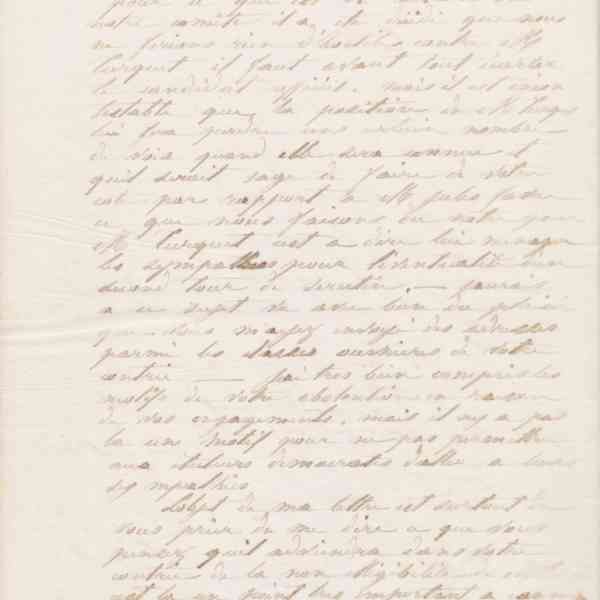 pour ce que
notre comité il a été décidé que nous
ne ferions rien d'hostile contre M
Turquet il faut avant tout écarter
le candidat officiel. mais il est incon
testable que la position de M Turquet
lui fera perdre un certain nombre
de voix quand elle sera connue et
qu'il serait sage de faire de votre
coté par rapport à M Jules Favre
ce que nous faisons du notre pour
M Turquet c'est a dire lui ménager
les sympathies pour l'éventualité d'un
second tour de scrutin. — j'aurais
a ce sujet vu avec bien du plaisir
que vous m'ayez envoyé des adresses
parmi les classes ouvrières de votre
contrée — j'ai très bien compris les
motifs de votre abstention en raison
de vos engagements, mais il n'y a pas
la un motif pour ne pas permettre
aux électeurs démocrates d'aller a leurs
sympathies
L'objet de ma lettre est surtout de
vous prier de me dire a que vous
pensez qu'il adviendra dans votre
contrée de la non éligibilité de
est la un point très important a